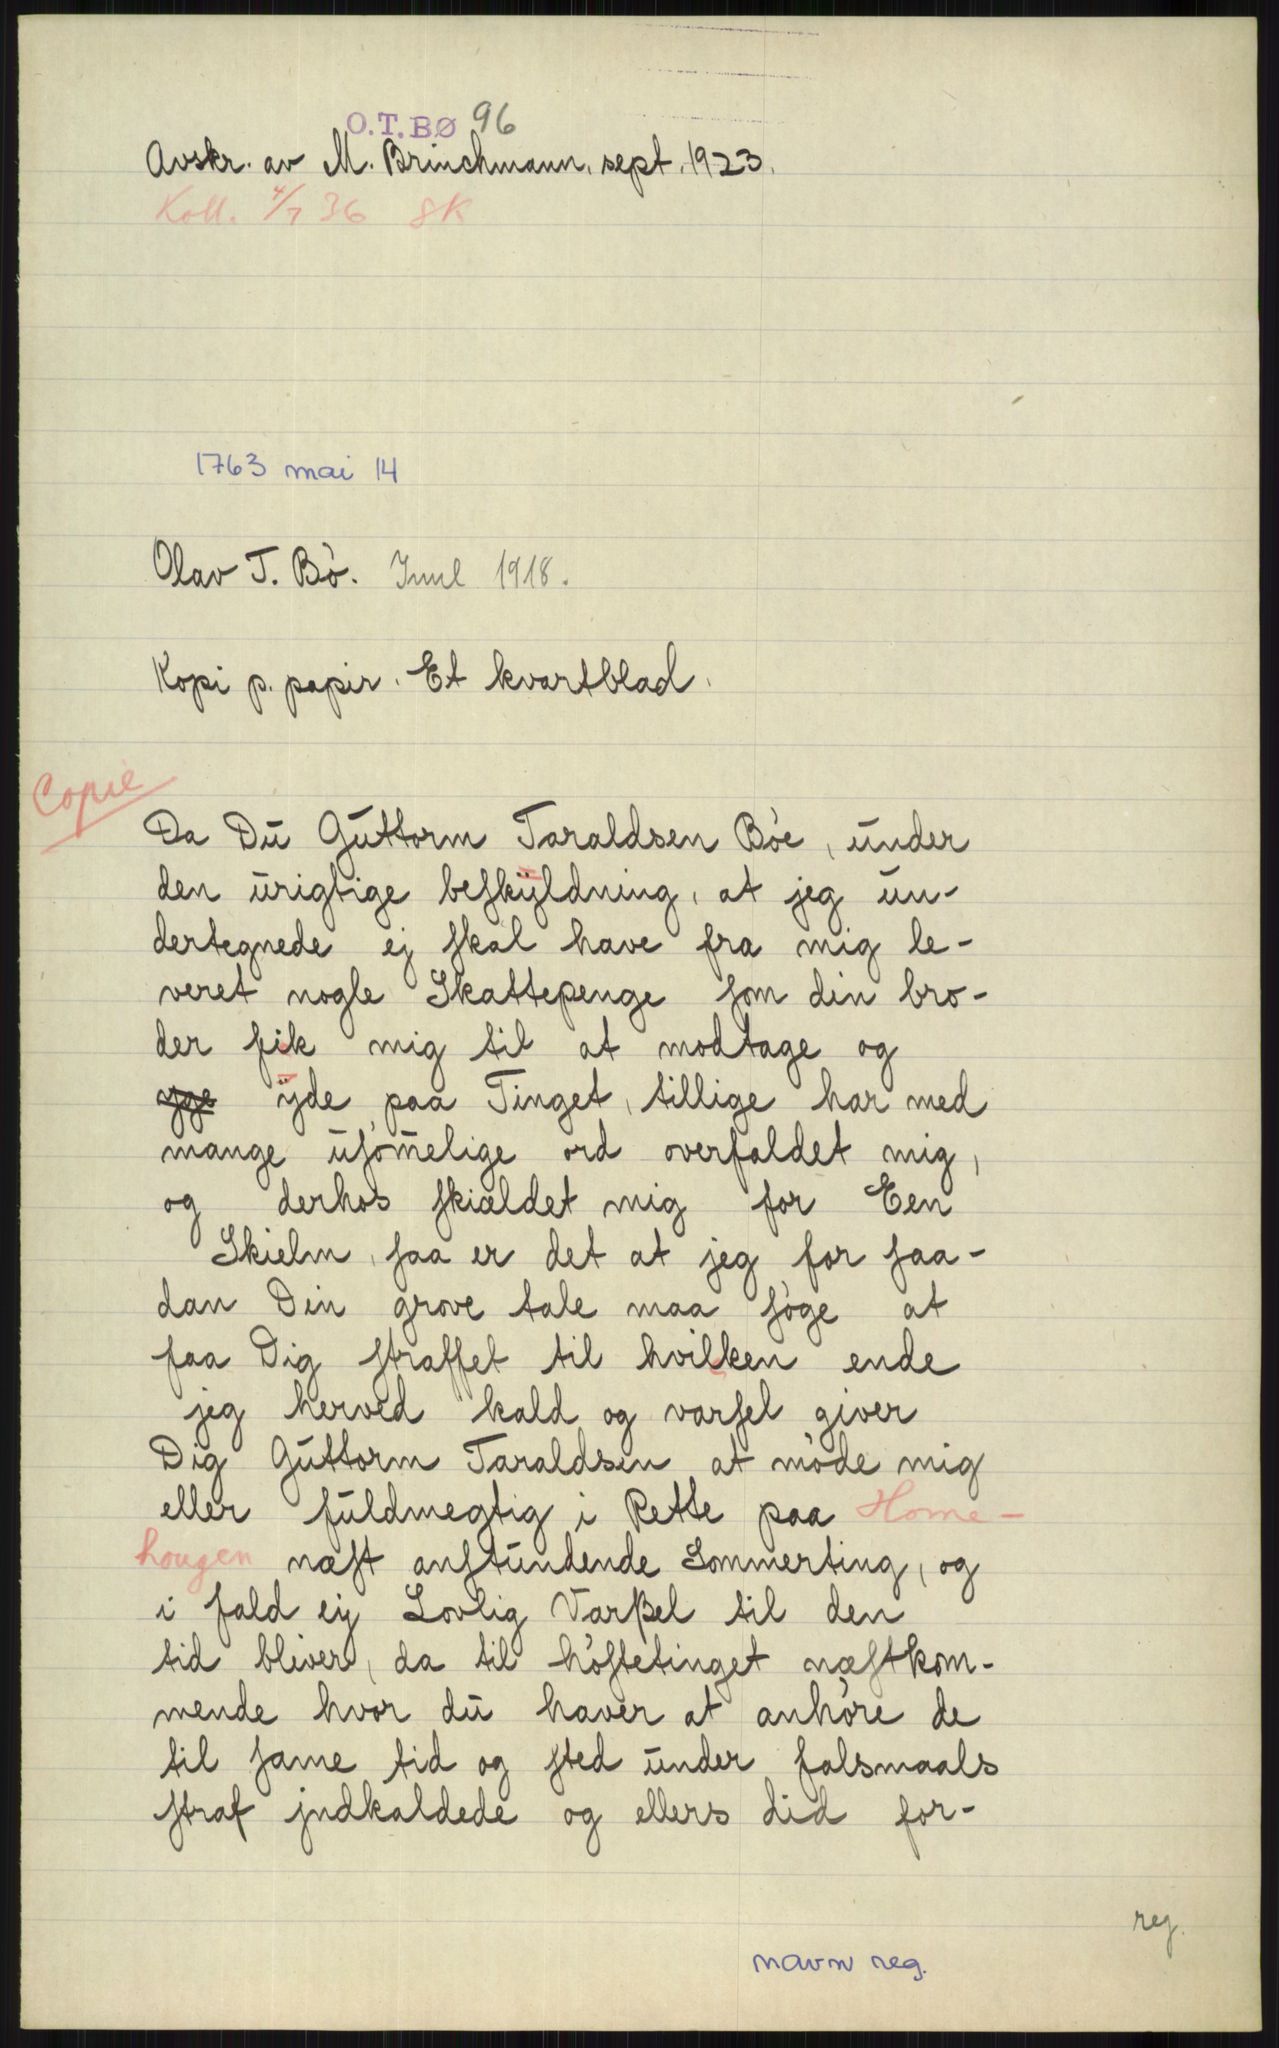 O.T.BØ 96
Avskr. av M. Brinchmann, sept. 1923.
Koll. 4/7 36 SK
1763 mai 14
Olav T. Bö. Juul 1918.
Kopi p. papir. Et kvartblad.
Copie
Da Dŭ Gŭttorm Taraldsen Böe, ŭnder
den ŭrigtige beſkÿldning, at jeg ŭn-
dertegnede ej ſkal have fra mig le-
veret nogle Skattepenge ſom din bro-
der fik mig til at modtage og
ÿde paa Tinget, tillige har med
mange ŭſöm̄elige ord overfaldet mig,
og derhos ſkiældet mig for Een
Skielm, ſaa er det at jeg for ſaa-
dan Din grove tale maa ſöge at
faa Dig ſtraffet til hvilken ende
jeg herved kald og varſel giver
Dig Gŭttorm Taraldsen at möde mig
eller fŭldmegtig i Rette paa Home-
hougen næſt anſtŭndende Sommerting, og
i fald eij Lovlig Varßel til den
tid bliver, da til höſtetinget næſtkom-
mende hvor dŭ haver at anhöre de
til ſame tid og ſted ŭnder falsmaals
ſtraf jndkaldede og ellers did for-
reg.
navn reg.